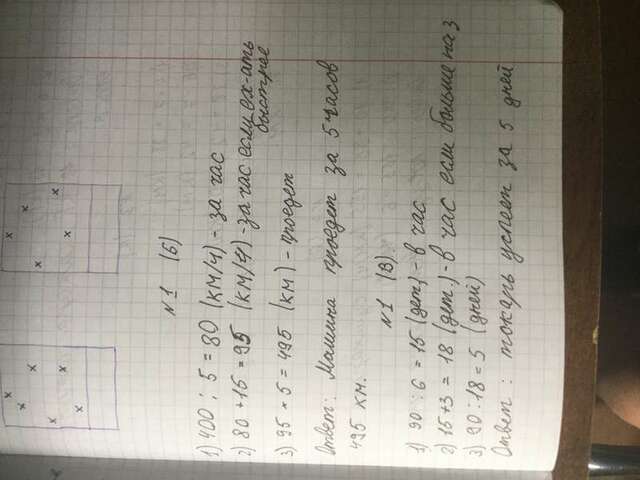 №1 (Б)
1) 400 : 5 = 80 (км/ч) - за час
2) 80 + 15 = 95 (км/ч) - за час если ех-ать
быстрее
3) 95 × 5 = 495 (км) - проедет
Ответ: Машина проедет за 5 часов
495 км.
№1 (В).
1) 90 : 6 = 15 (дет) - в час
2) 15 + 3 = 18 (дет.) - в час если больше на 3
3) 90 : 18 = 5 (дней)
Ответ : токарь успеет за 5 дней